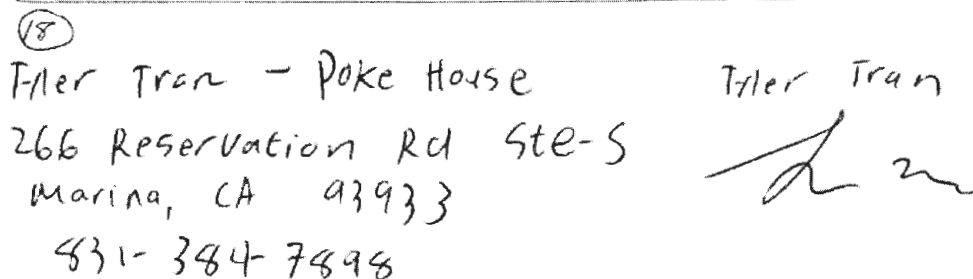 18
Tyler Tran - Poke House
266 Reservation Rd Ste-S
Marina, CA 93933
831-384-7898
Tyler Tran